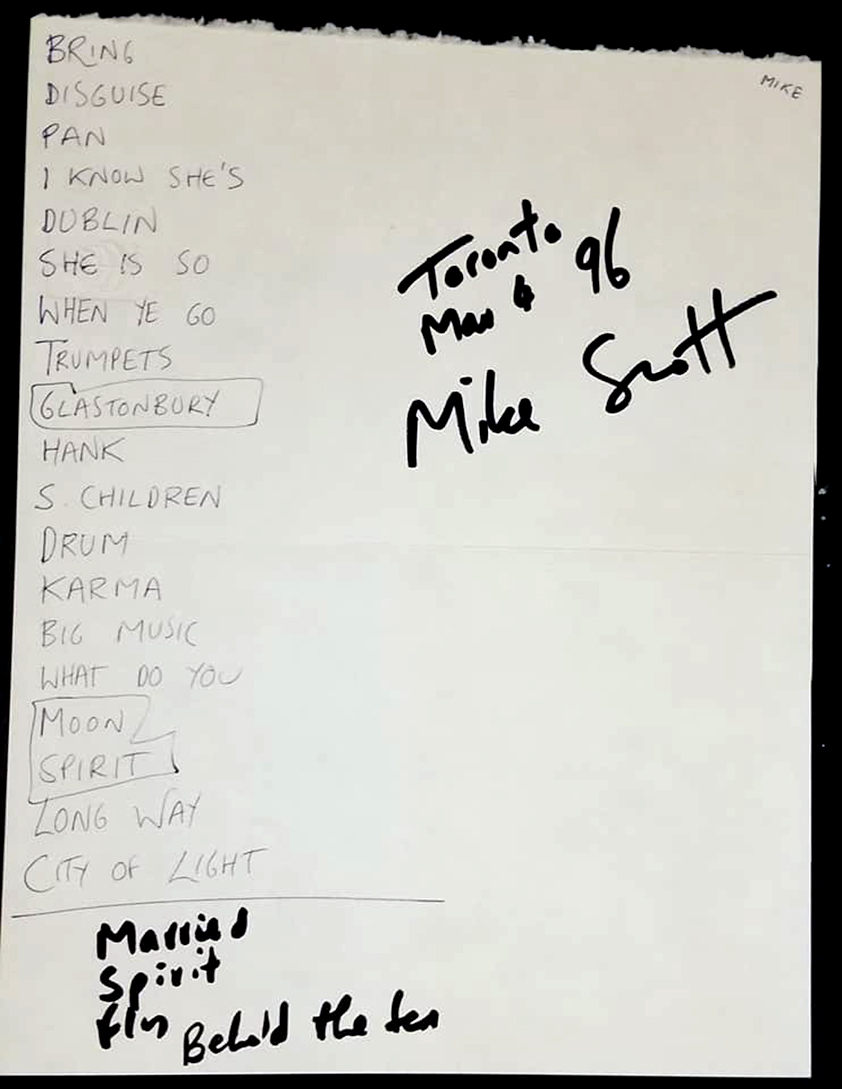 BRING
DISGUISE
PAN
I KNOW SHE'S
DUBLIN
SHE IS SO
WHEN YE GO
TRUMPETS
GLASTONBURY
HANK
S. CHILDREN
DRUM
KARMA
BIG MUSIC
WHAT DO YOU
MOON
SPIRIT
LONG WAY
CITY OF LIGHT
Married
Spirit
Behold the sea
MIKE
Toronto
Mar 6 96
Mike Scott